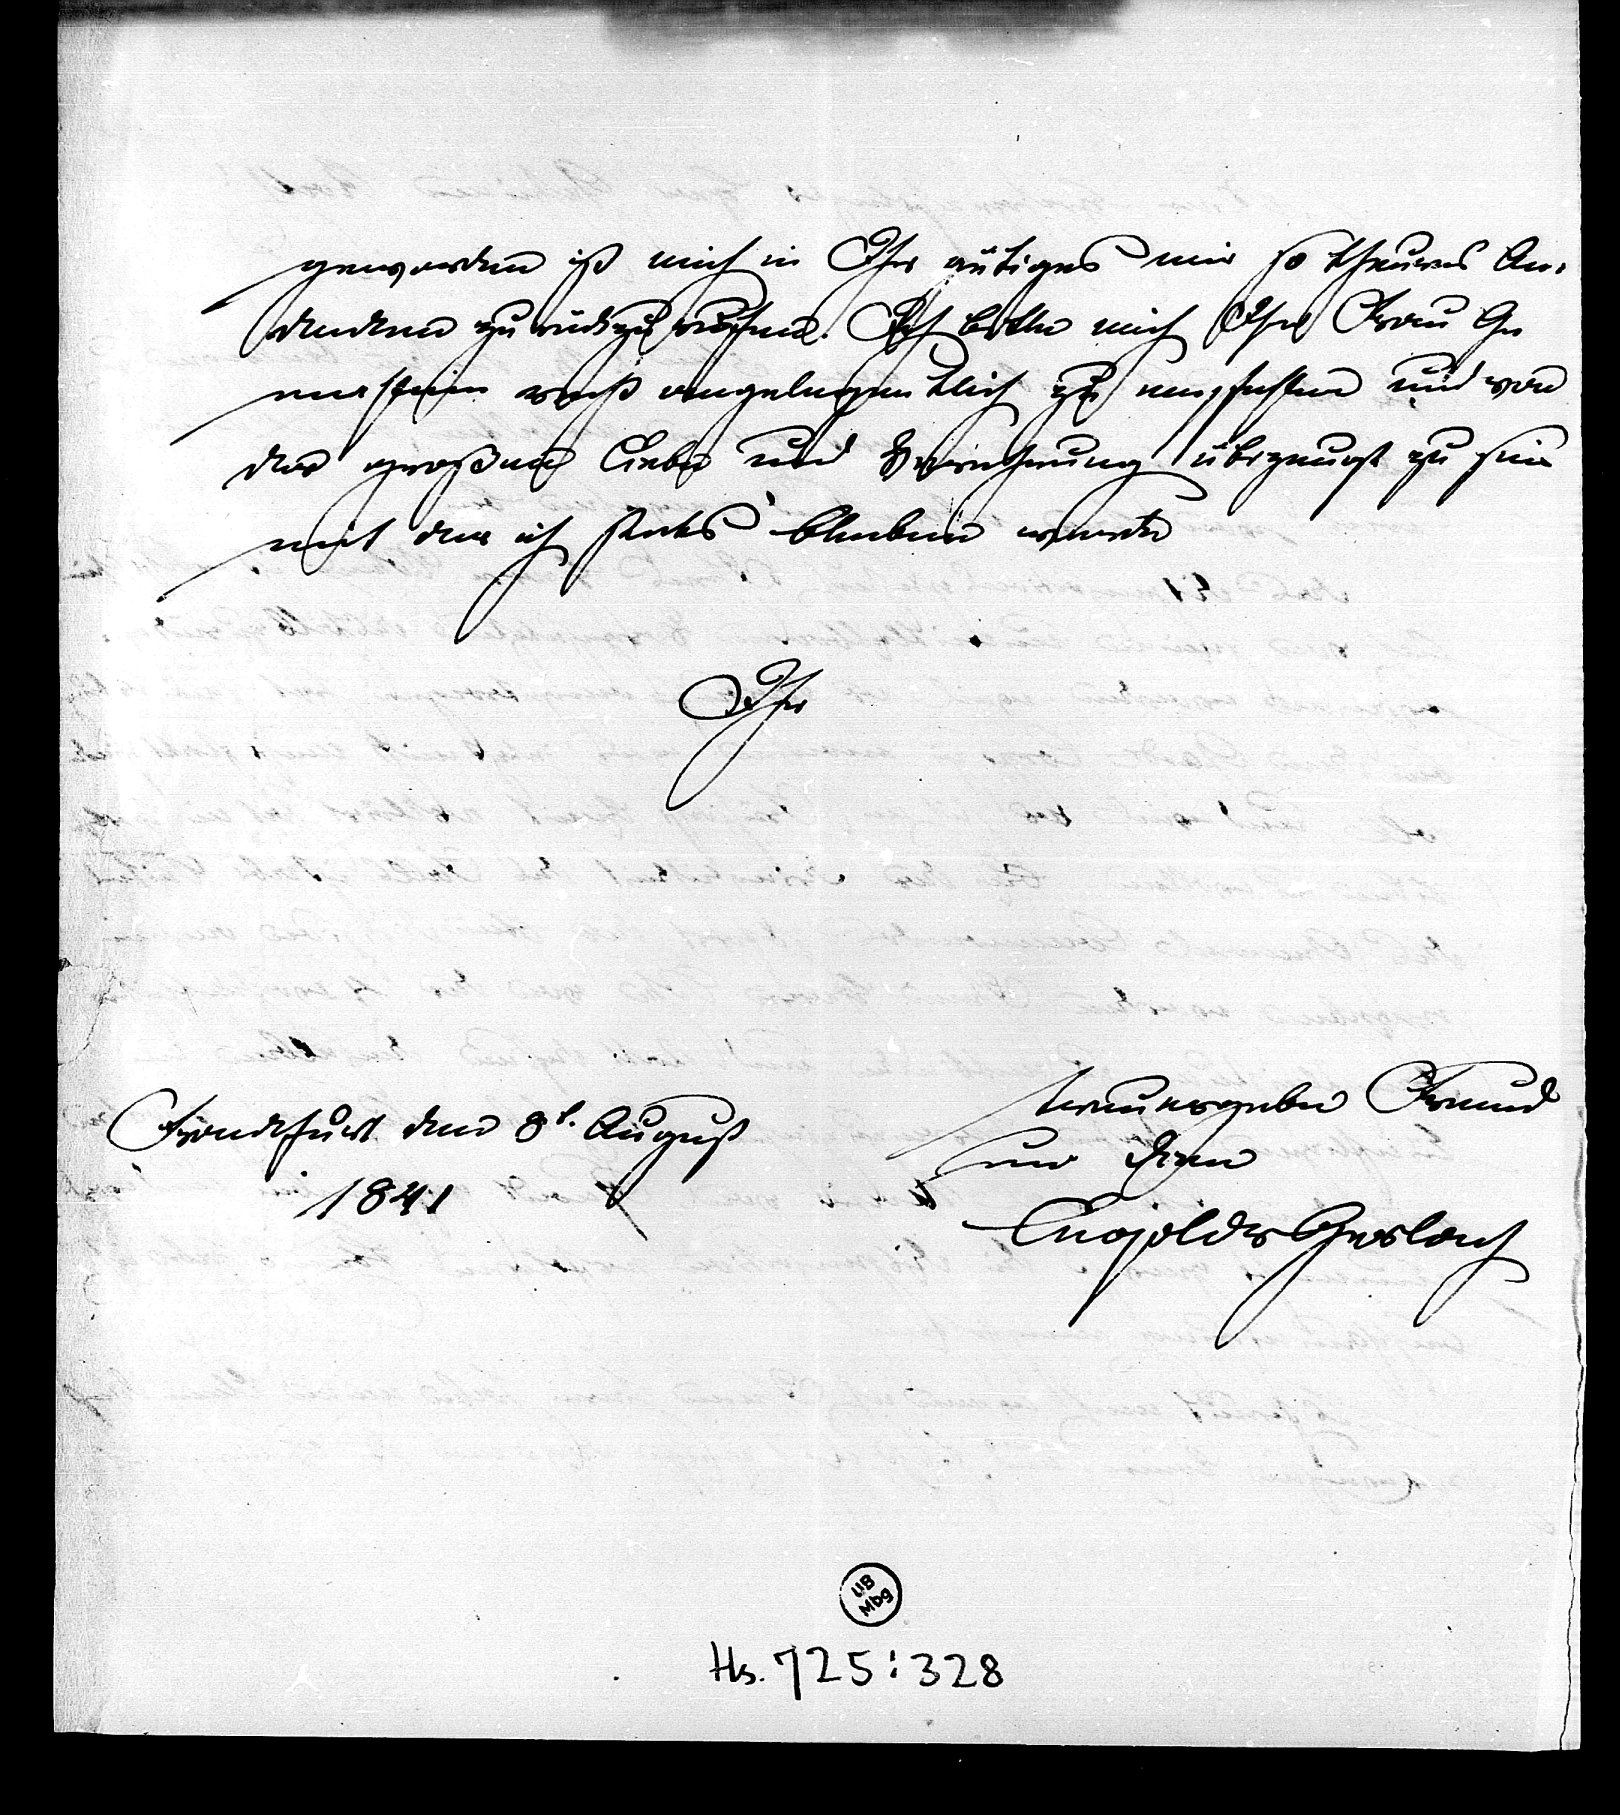 geworden ist mich in Ihr gütiges mir so theures An-
denken zurückzurufen. Ich bitte mich Ihrer Frau Ge
mahlin recht angelegentlich zu empfehlen und von
der großen Liebe und Verehrung überzeugt zu sein
mit der ich stets bleiben werde
Ihr
treuergebener Freund
und Diener
Leopold v Gerlach
Frankfurt den 8t. August
1841
UB
Mbg
Hs. 725:328